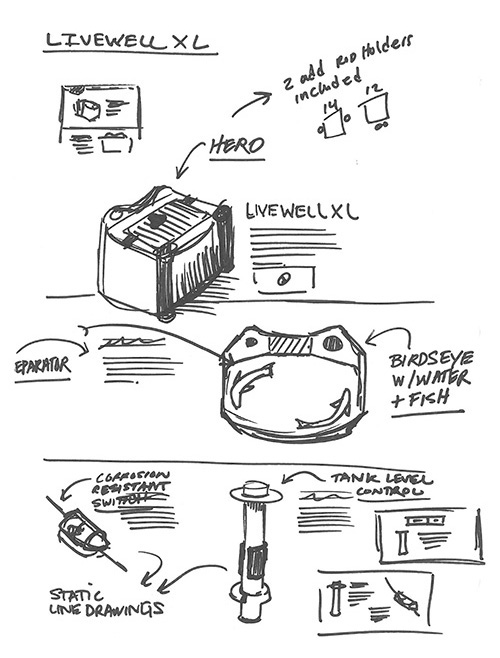 LIVEWELL XL
2 add ROD Holders
included
14
12
HERO
LIVEWELL XL
EPARATOR
BIRDSEYE
W/WATER
+ FISH
CORROSION
RESISTANT
SWITCH
TANK LEVEL
CONTROL
STATIC
LINE DRAWINGS